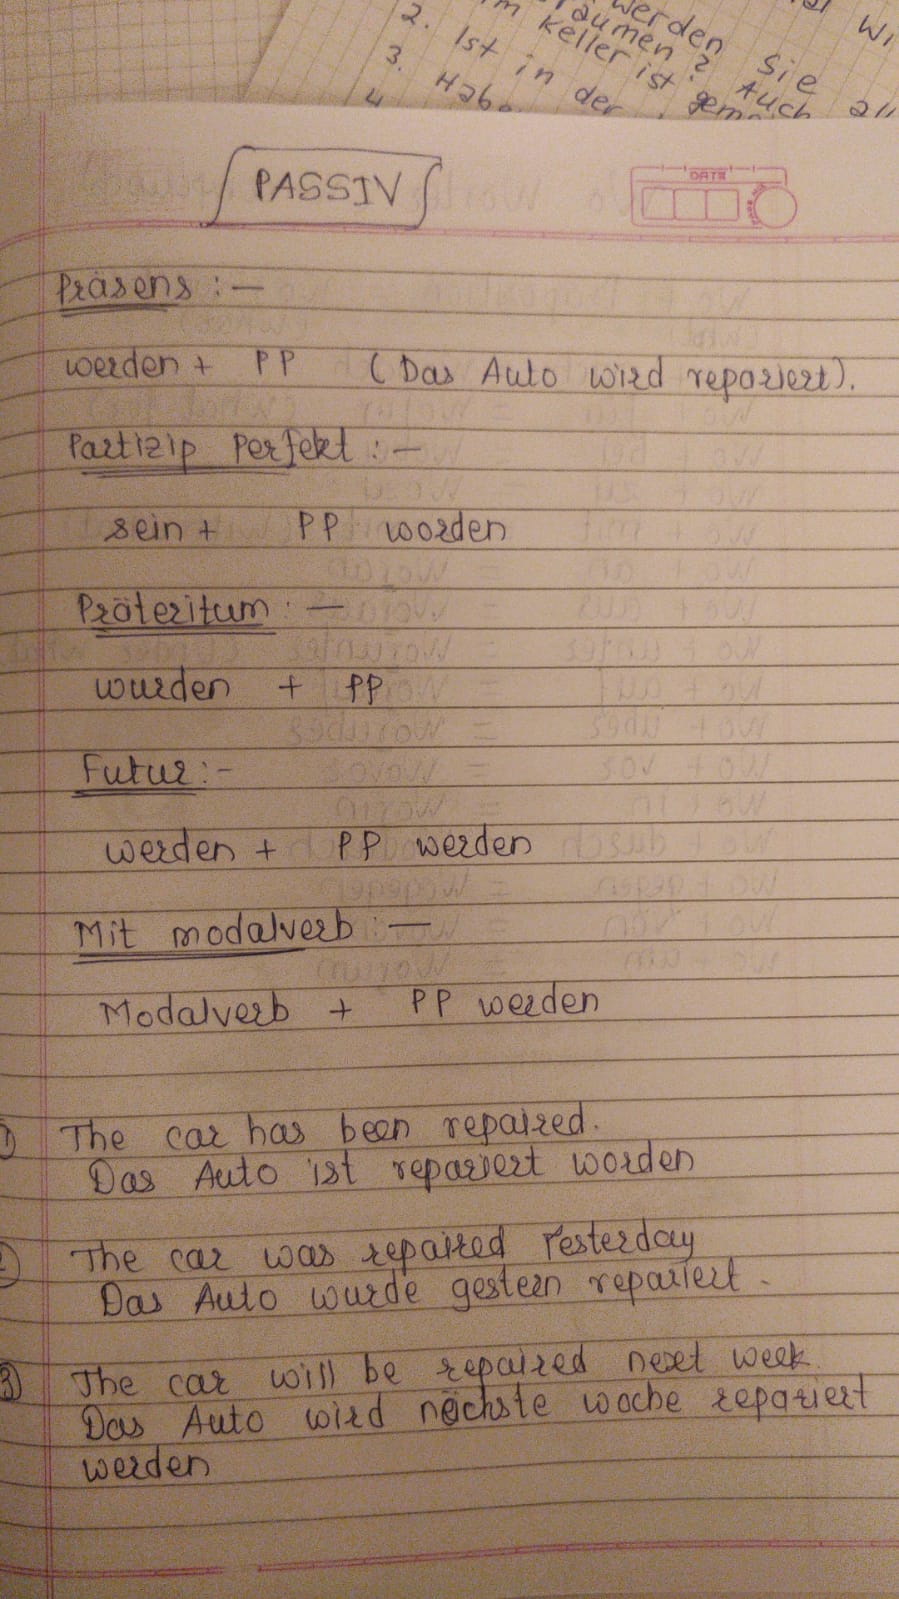 werden Sie
räumen? Auch all
2. Keller ist
3. Ist in der
4 Hab
Wi
PASSIV
DATE
Präsens :-
werden + PP (Das Auto wird repariert).
Partizip Perfekt :-
sein + PP worden
Präteritum :-
wurden + PP
Futur :-
werden + PP werden
Mit modalverb :-
Modalverb + PP werden
① The car has been repaired.
Das Auto ist repariert worden
② The car was repaired Yesterday
Das Auto wurde gestern repariert.
③ The car will be repaired next week.
Das Auto wird nächste woche repariert
werden